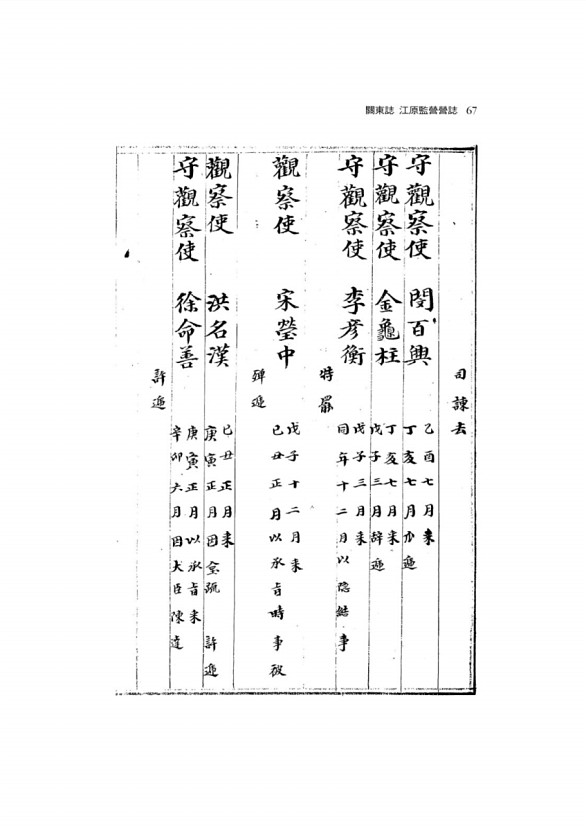 關東誌 江原監營營誌 67
司諫去
守觀察使 閔百興
乙酉七月來
丁亥七月瓜遞
守觀察使 金龜柱
丁亥七月來
戊子三月辞遞
守觀察使 李彦衡
戊子三月來
同年十二月以隐結事
特罷
觀察使 宋瑩中
戊子十二月來
己丑正月以承旨時事被
遞
觀察使 洪名漢
己丑正月來
庚寅正月因臺疏 許遞
守觀察使 徐命善
庚寅正月以承旨來
辛卯六月因大臣陳達
許遞